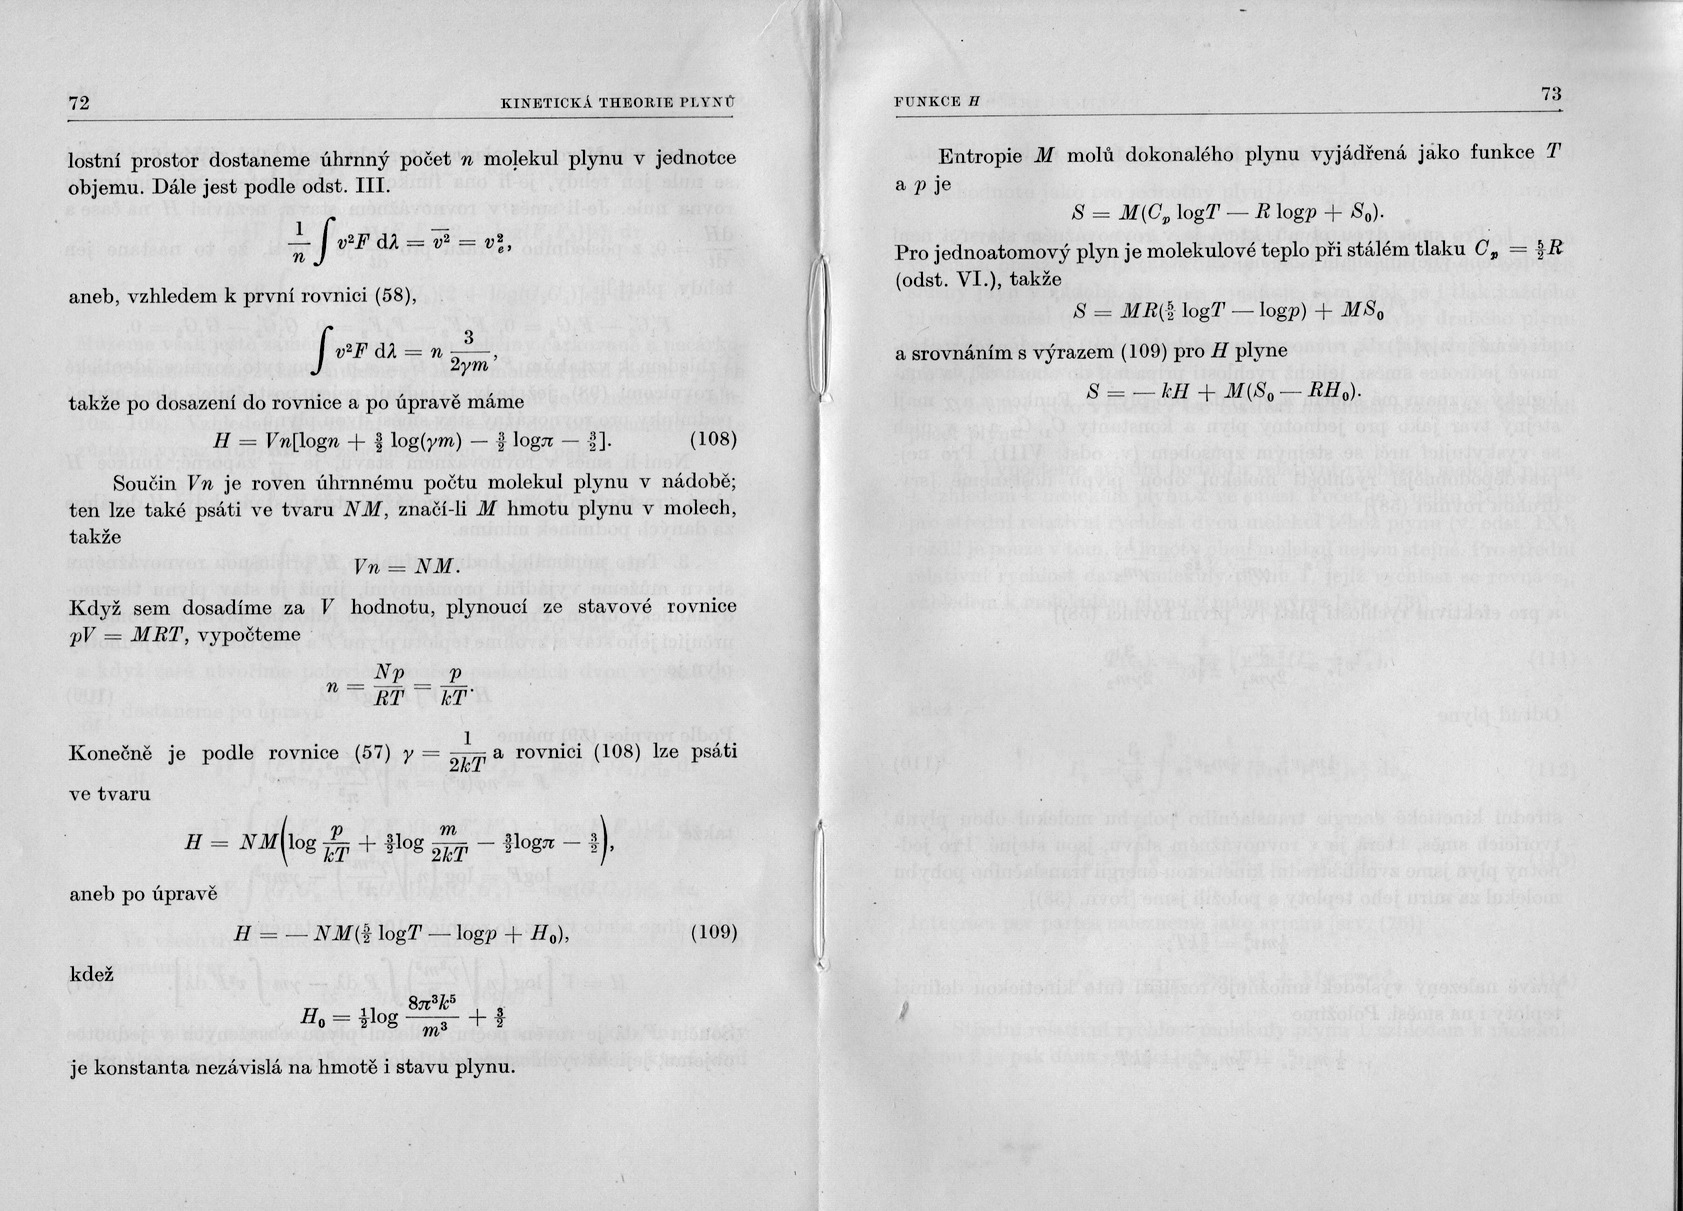 72 KINETICKÁ THEORIE PLYNŮ
lostní prostor dostaneme úhrnný počet n molekul plynu v jednotce
objemu. Dále jest podle odst. III.
1/n ∫ v²F dλ = v̅² = vₑ²,
aneb, vzhledem k první rovnici (58),
∫ v²F dλ = n 3/2γm,
takže po dosazení do rovnice a po úpravě máme
H = Vn[logn + 3/2 log(γm) — 3/2 logπ — 3/2]. (108)
Součin Vn je roven úhrnnému počtu molekul plynu v nádobě;
ten lze také psáti ve tvaru NM, značí-li M hmotu plynu v molech,
takže
Vn = NM.
Když sem dosadíme za V hodnotu, plynoucí ze stavové rovnice
pV = MRT, vypočteme
n = Np/RT = p/kT.
Konečně je podle rovnice (57) γ = 1/2kT a rovnici (108) lze psáti
ve tvaru
H = NM(log p/kT + 3/2log m/2kT — 3/2logπ — 3/2),
aneb po úpravě
H = — NM(5/2 logT — logp + H₀), (109)
kdež
H₀ = 1/2log 8π³k⁵/m³ + 3/2
je konstanta nezávislá na hmotě i stavu plynu.
FUNKCE H 73
Entropie M molů dokonalého plynu vyjádřená jako funkce T
a p je
S = M(Cₚ logT — R logp + S₀).
Pro jednoatomový plyn je molekulové teplo při stálém tlaku Cₚ = 5/2R
(odst. VI.), takže
S = MR(5/2 logT — logp) + MS₀
a srovnáním s výrazem (109) pro H plyne
S = — kH + M(S₀ — RH₀).